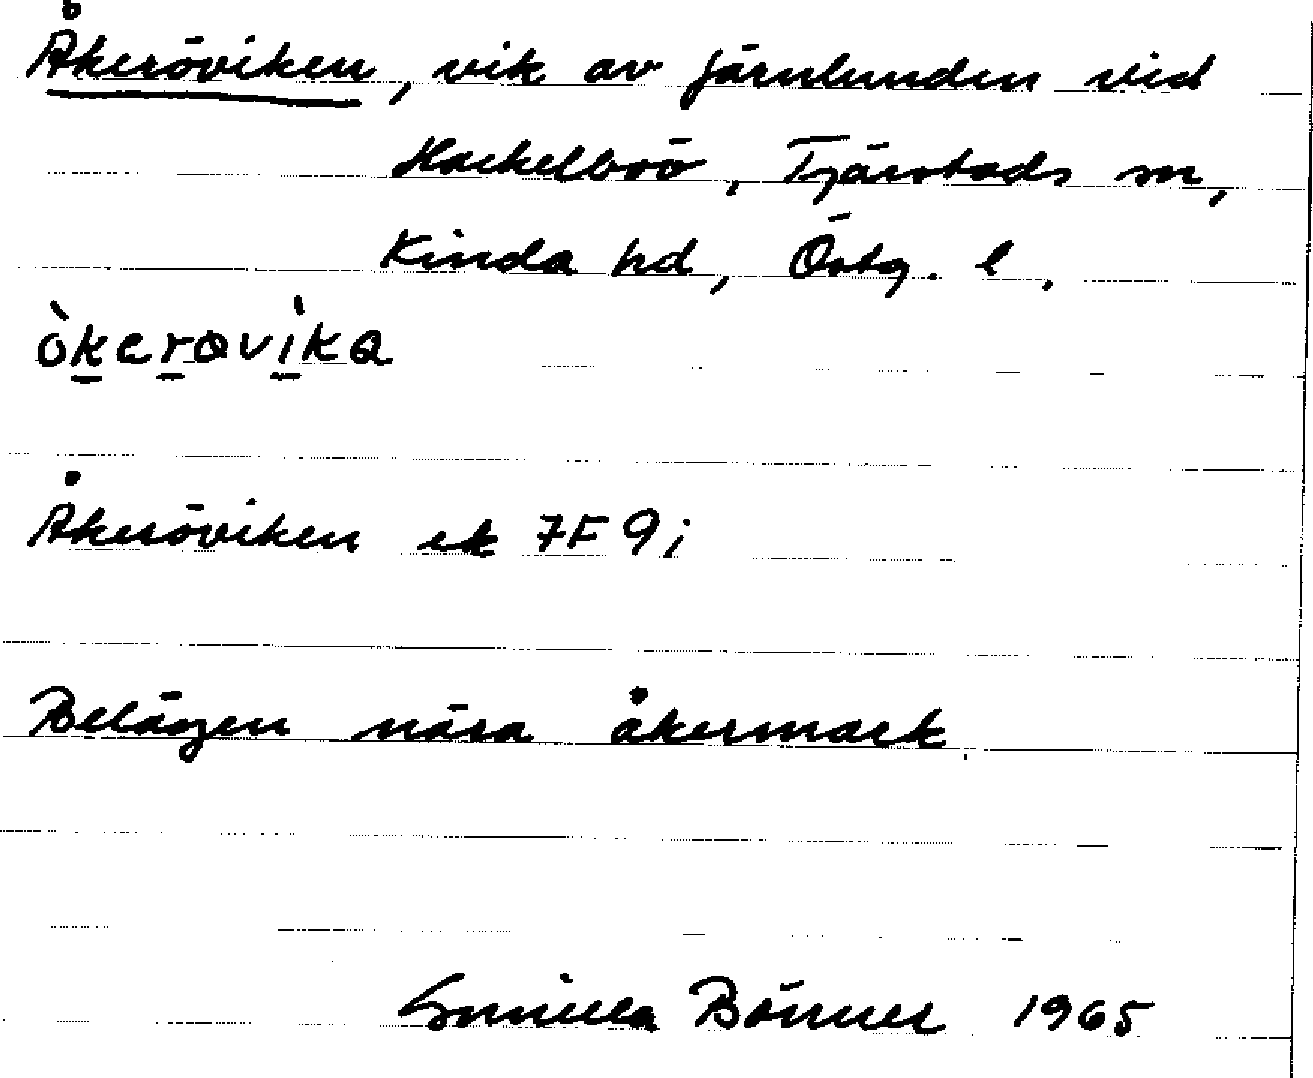 Åkeröviken, vik av Järnlunden vid
Hackelboö, Tjärstads sn,
Kinda hd, Östg. l.
òkerøvìka
Åkeröviken ek 7F 9i
Belägen nära åkermark.
Gunilla Börner 1965